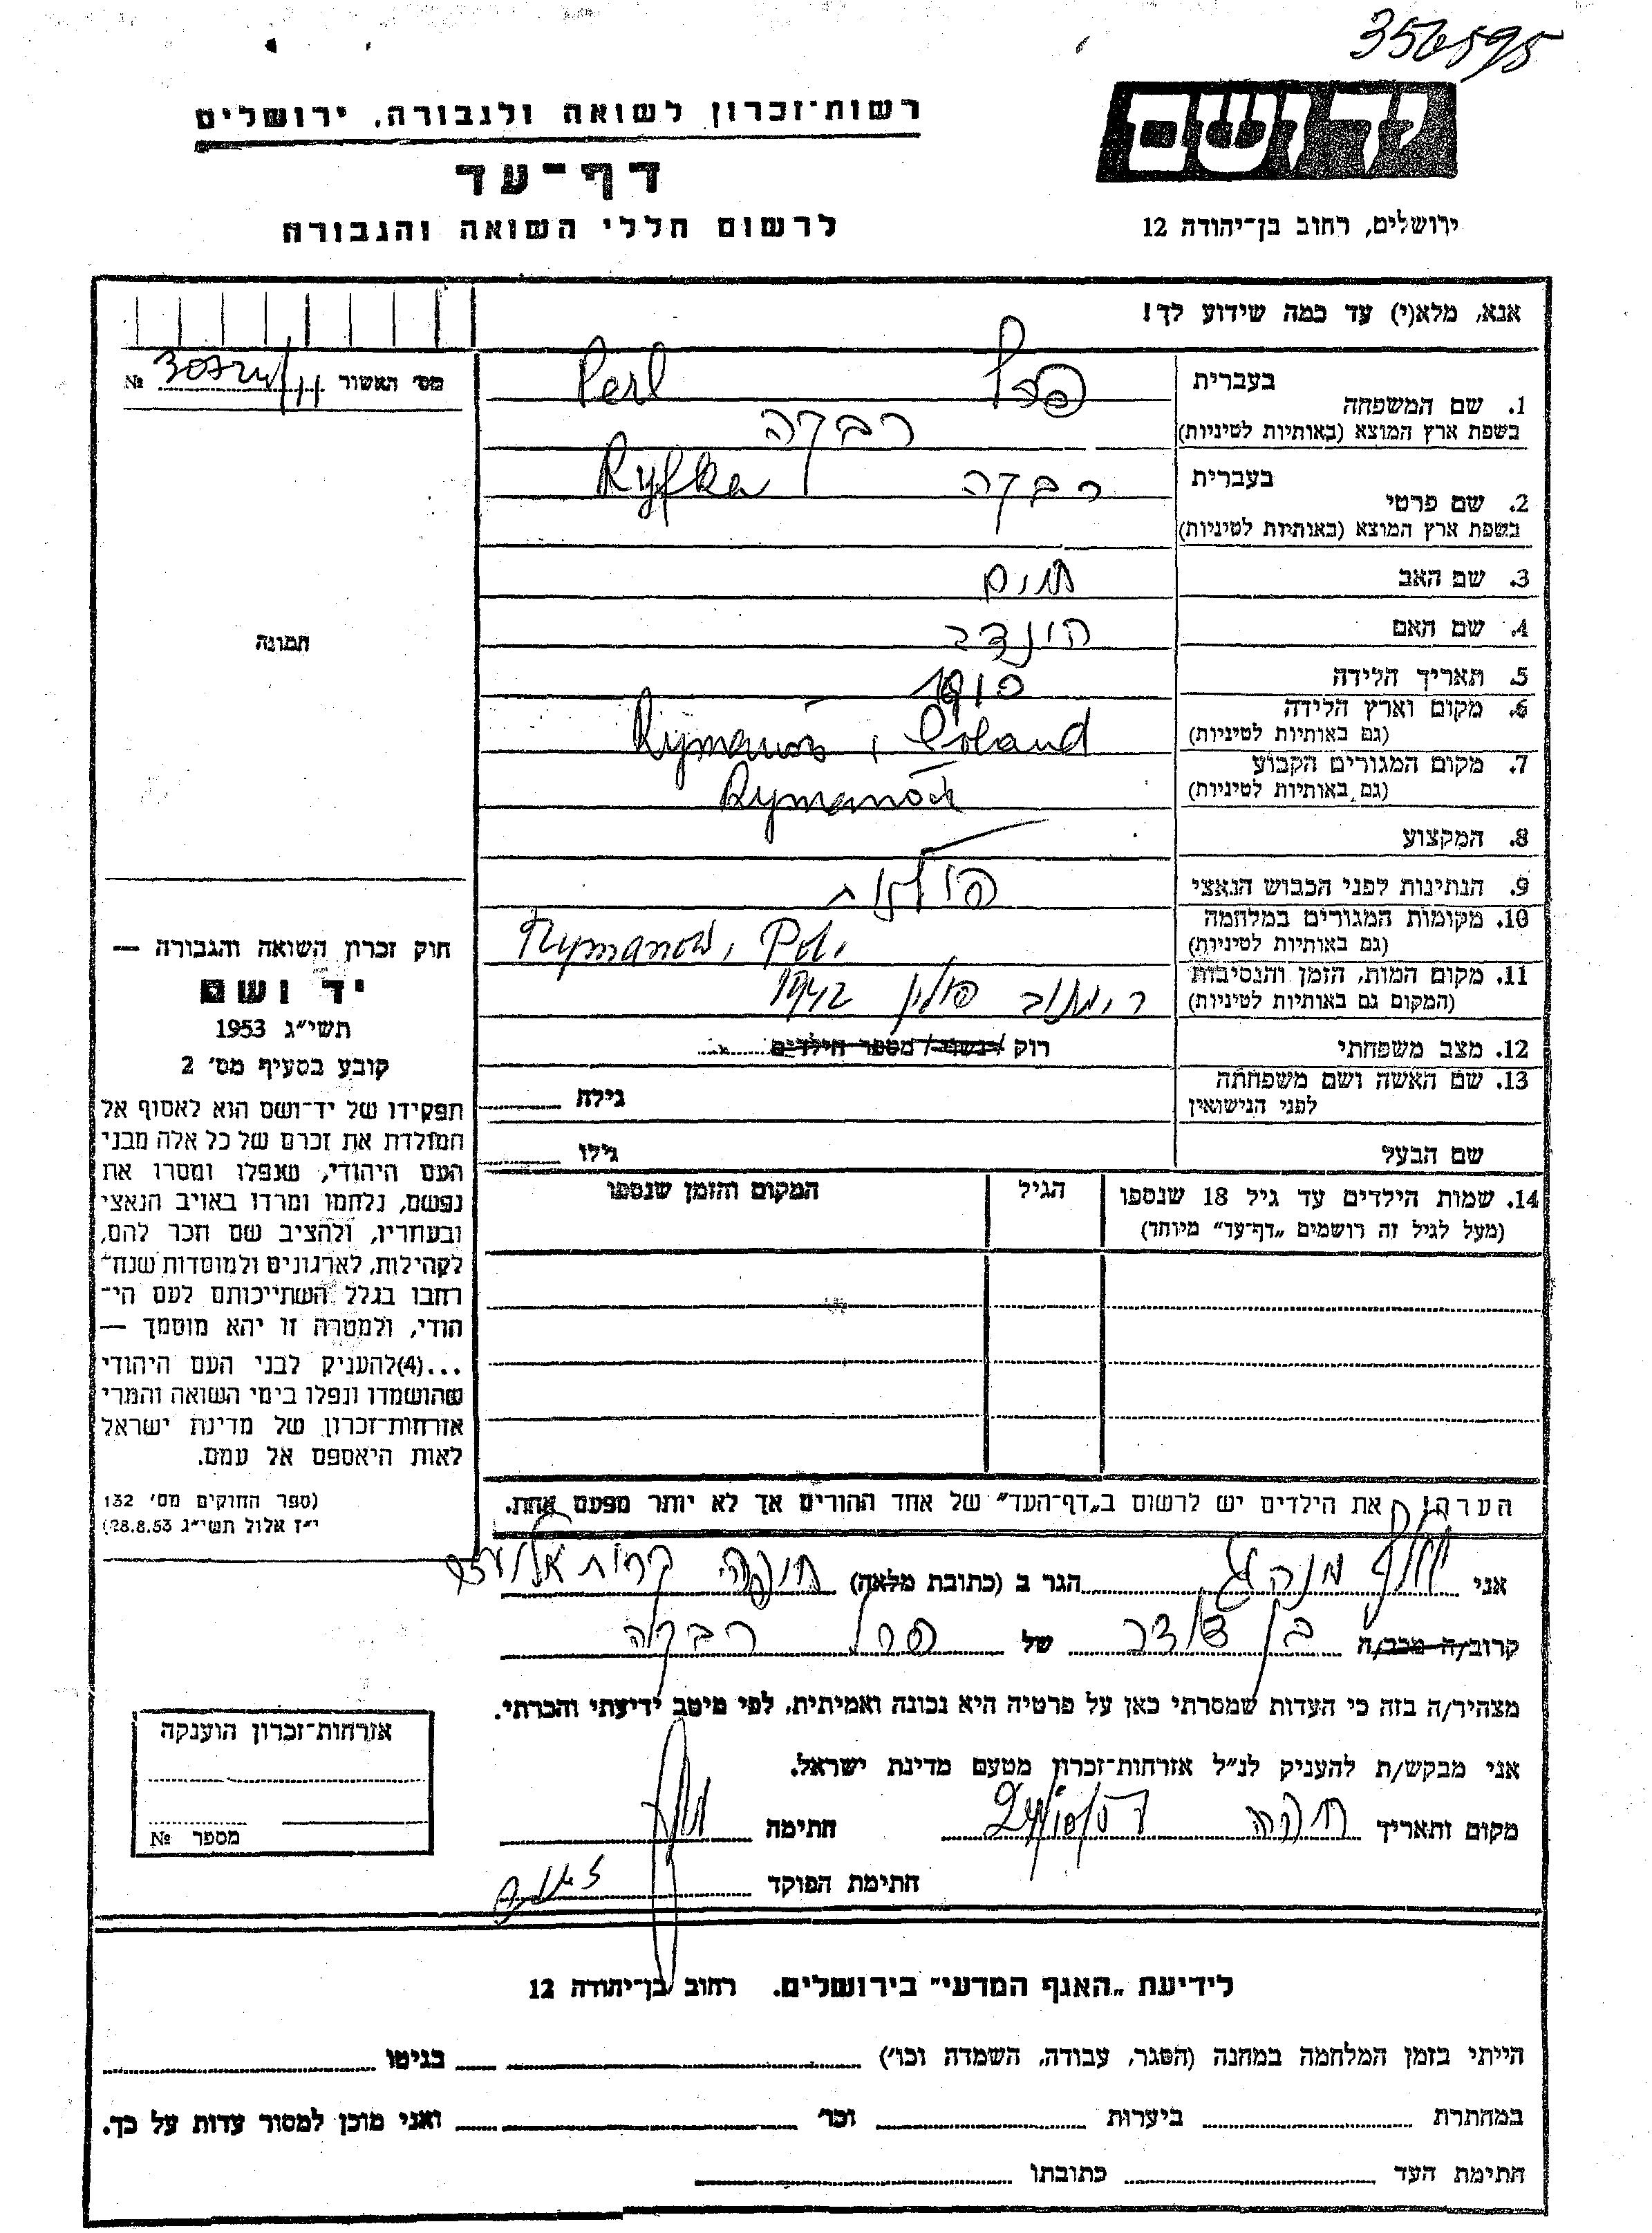 356595
רשות־זכרון לשואה ולגבורה, ירושלים
יד ושם
דף־עד
לרשום חללי השואה והגבורה
ירושלים, רחוב בן־יהודה 12
אנא, מלא(י) עד כמה שידוע לך!
מס' האשור №
בעברית פרל Perl
1. שם המשפחה
בשפת ארץ המוצא (באותיות לטיניות) רבקה
בעברית רבקה Ryfka
2. שם פרטי
בשפת ארץ המוצא (באותיות לטיניות)
3. שם האב חיים
4. שם האם הינדב
5. תאריך הלידה 1910
6. מקום וארץ הלידה Rymanów, Poland
(גם באותיות לטיניות)
7. מקום המגורים הקבוע Rymanów
(גם באותיות לטיניות)
8. המקצוע
9. הנתינות לפני הכבוש הנאצי פולנית
10. מקומות המגורים במלחמה Rymanów, Pol.
(גם באותיות לטיניות)
11. מקום המות, הזמן והנסיבות
(המקום גם באותיות לטיניות) רימנוב פולין 1942
12. מצב משפחתי רוק / נשוי / מספר הילדים
13. שם האשה ושם משפחתה
לפני הנישואין גילה
שם הבעל גילו
14. שמות הילדים עד גיל 18 שנספו הגיל המקום והזמן שנספו
(מעל לגיל זה רושמים „דף־עד" מיוחד)
הערה: את הילדים יש לרשום ב„דף־העד" של אחד ההורים אך לא יותר מפעם אחת.
תמונה
חוק זכרון השואה והגבורה —
יד ושם
תשי"ג 1953
קובע בסעיף מס' 2
תפקידו של יד־ושם הוא לאסוף אל
המולדת את זכרם של כל אלה מבני
העם היהודי, שנפלו ומסרו את
נפשם, נלחמו ומרדו באויב הנאצי
ובעוזריו, ולהציב שם וזכר להם,
לקהילות, לארגונים ולמוסדות שנח־
רבו בגלל השתייכותם לעם הי־
הודי, ולמטרה זו יהא מוסמך —
...(4)להעניק לבני העם היהודי
שהושמדו ונפלו בימי השואה והמרי
אזרחות־זכרון של מדינת ישראל
לאות היאספם אל עמם.
(ספר החוקים מס' 132
י"ז אלול תשי"ג 28.8.53)
אני הגר ב (כתובת מלאה) חיפה קרית אליעזר
קרוב/ה מכר/ה בן דוד של פרל רבקה
מצהיר/ה בזה כי העדות שמסרתי כאן על פרטיה היא נכונה ואמיתית, לפי מיטב ידיעתי והכרתי.
אני מבקש/ת להעניק לנ"ל אזרחות־זכרון מטעם מדינת ישראל.
מקום ותאריך חיפה חתימה
חתימת הפוקד
אזרחות־זכרון הוענקה
מספר №
לידיעת „האגף המדעי" בירושלים. רחוב בן־יהודה 12
הייתי בזמן המלחמה במחנה (הסגר, עבודה, השמדה וכו') בגיטו
במחתרת ביערות וכו' ואני מוכן למסור עדות על כך.
חתימת העד כתובתו